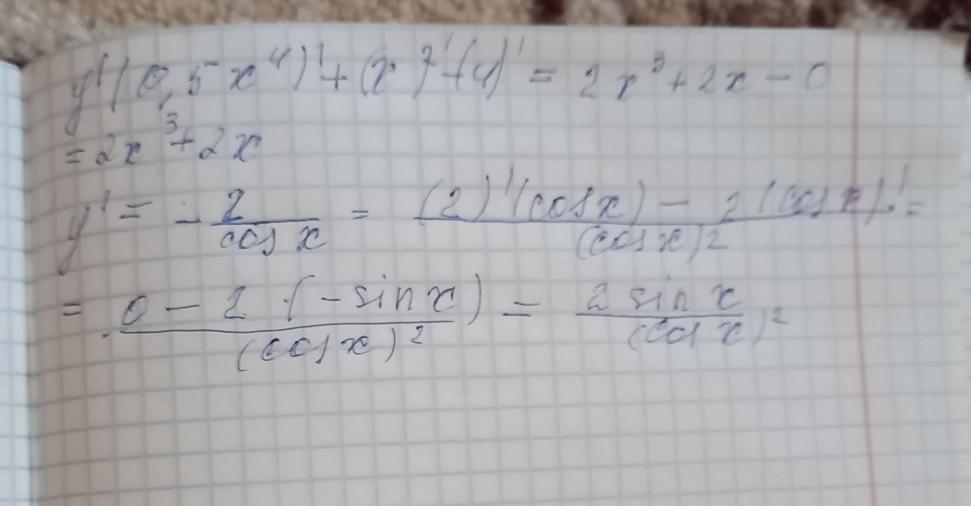 y'(0,5x⁴)'+(x)²'-(4)' = 2x³+2x-0
=2x³+2x
y' = -2/cos x = ((2)'(cos x) - 2(cos x)')/(cos x)² =
= (0 - 2·(-sin x))/(cos x)² = 2 sin x/(cos x)²